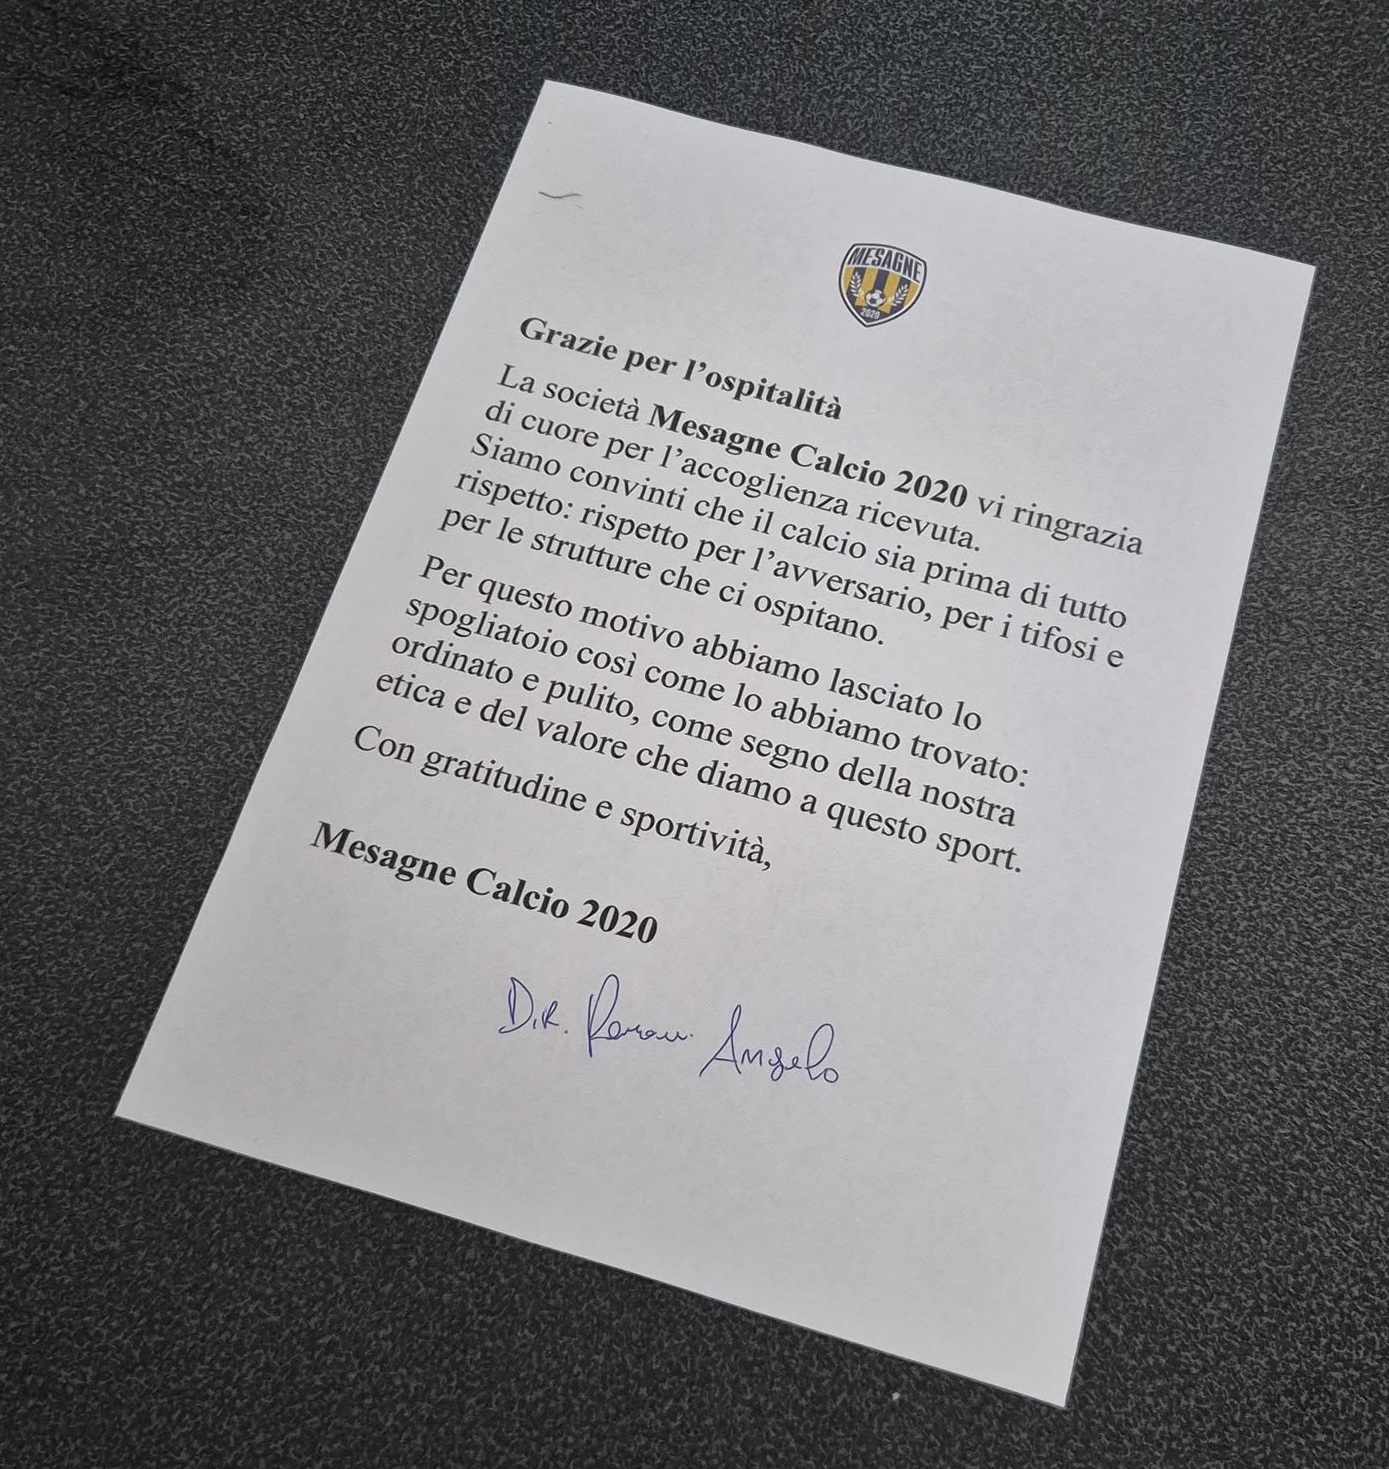 MESAGNE
2020
Grazie per l’ospitalità
La società Mesagne Calcio 2020 vi ringrazia
di cuore per l’accoglienza ricevuta.
Siamo convinti che il calcio sia prima di tutto
rispetto: rispetto per l’avversario, per i tifosi e
per le strutture che ci ospitano.
Per questo motivo abbiamo lasciato lo
spogliatoio così come lo abbiamo trovato:
ordinato e pulito, come segno della nostra
etica e del valore che diamo a questo sport.
Con gratitudine e sportività,
Mesagne Calcio 2020
Angelo